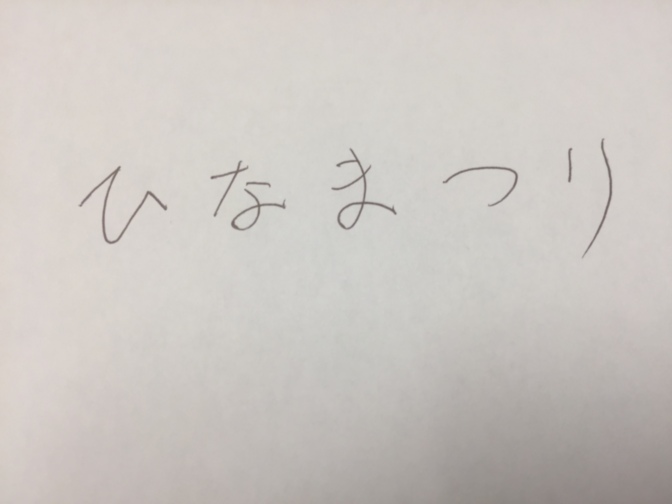 ひなまつり